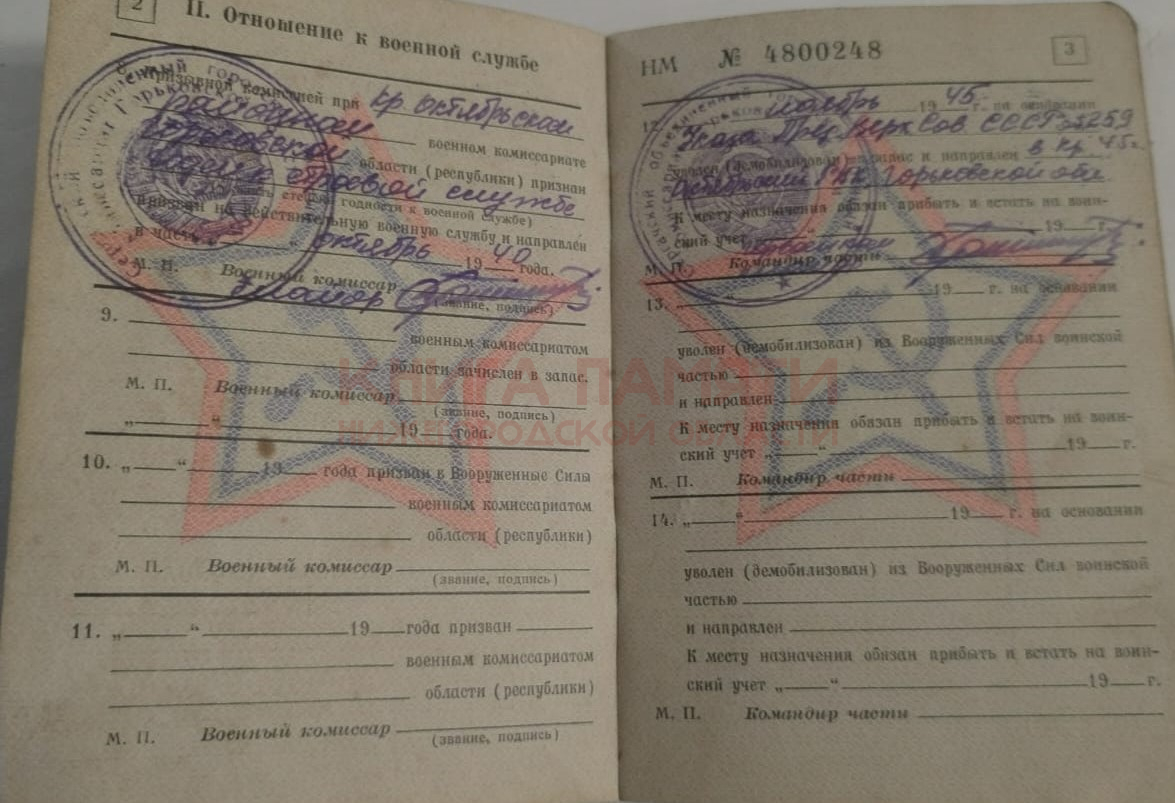 2
II. Отношение к военной службе
8. Призывной комиссией при Кр. Октябрьском
районном военном комиссариате
Горьковской области (республики) признан
годен к строевой службе
(степень годности к военной службе)
призван на действительную военную службу и направлен
в часть октябрь 1940 года.
М. П. Военный комиссар
майор
(звание, подпись)
9.
военным комиссариатом
области зачислен в запас.
М. П. Военный комиссар
(звание, подпись)
„ “ 19 года.
10. „ “ 19 года призван в Вооруженные Силы
военным комиссариатом
области (республики)
М. П. Военный комиссар
(звание, подпись)
11. „ “ 19 года призван
военным комиссариатом
области (республики)
М. П. Военный комиссар
(звание, подпись)
НМ № 4800248
3
12. ноябрь 1945 г. на основании
Указа През. Верх Сов. СССР 259
уволен (демобилизован) в запас и направлен в Кр 45г.
Октябрьский РВК Горьковской обл.
К месту назначения обязан прибыть и встать на воин-
ский учет 19 г.
М. П. Командир части
13. „ “ 19 г. на основании
уволен (демобилизован) из Вооруженных Сил воинской
частью
и направлен
К месту назначения обязан прибыть и встать на воин-
ский учет „ “ 19 г.
М. П. Командир части
14. „ “ 19 г. на основании
уволен (демобилизован) из Вооруженных Сил воинской
частью
и направлен
К месту назначения обязан прибыть и встать на воин-
ский учет „ “ 19 г.
М. П. Командир части
КНИГА ПАМЯТИ
НИЖЕГОРОДСКОЙ ОБЛАСТИ